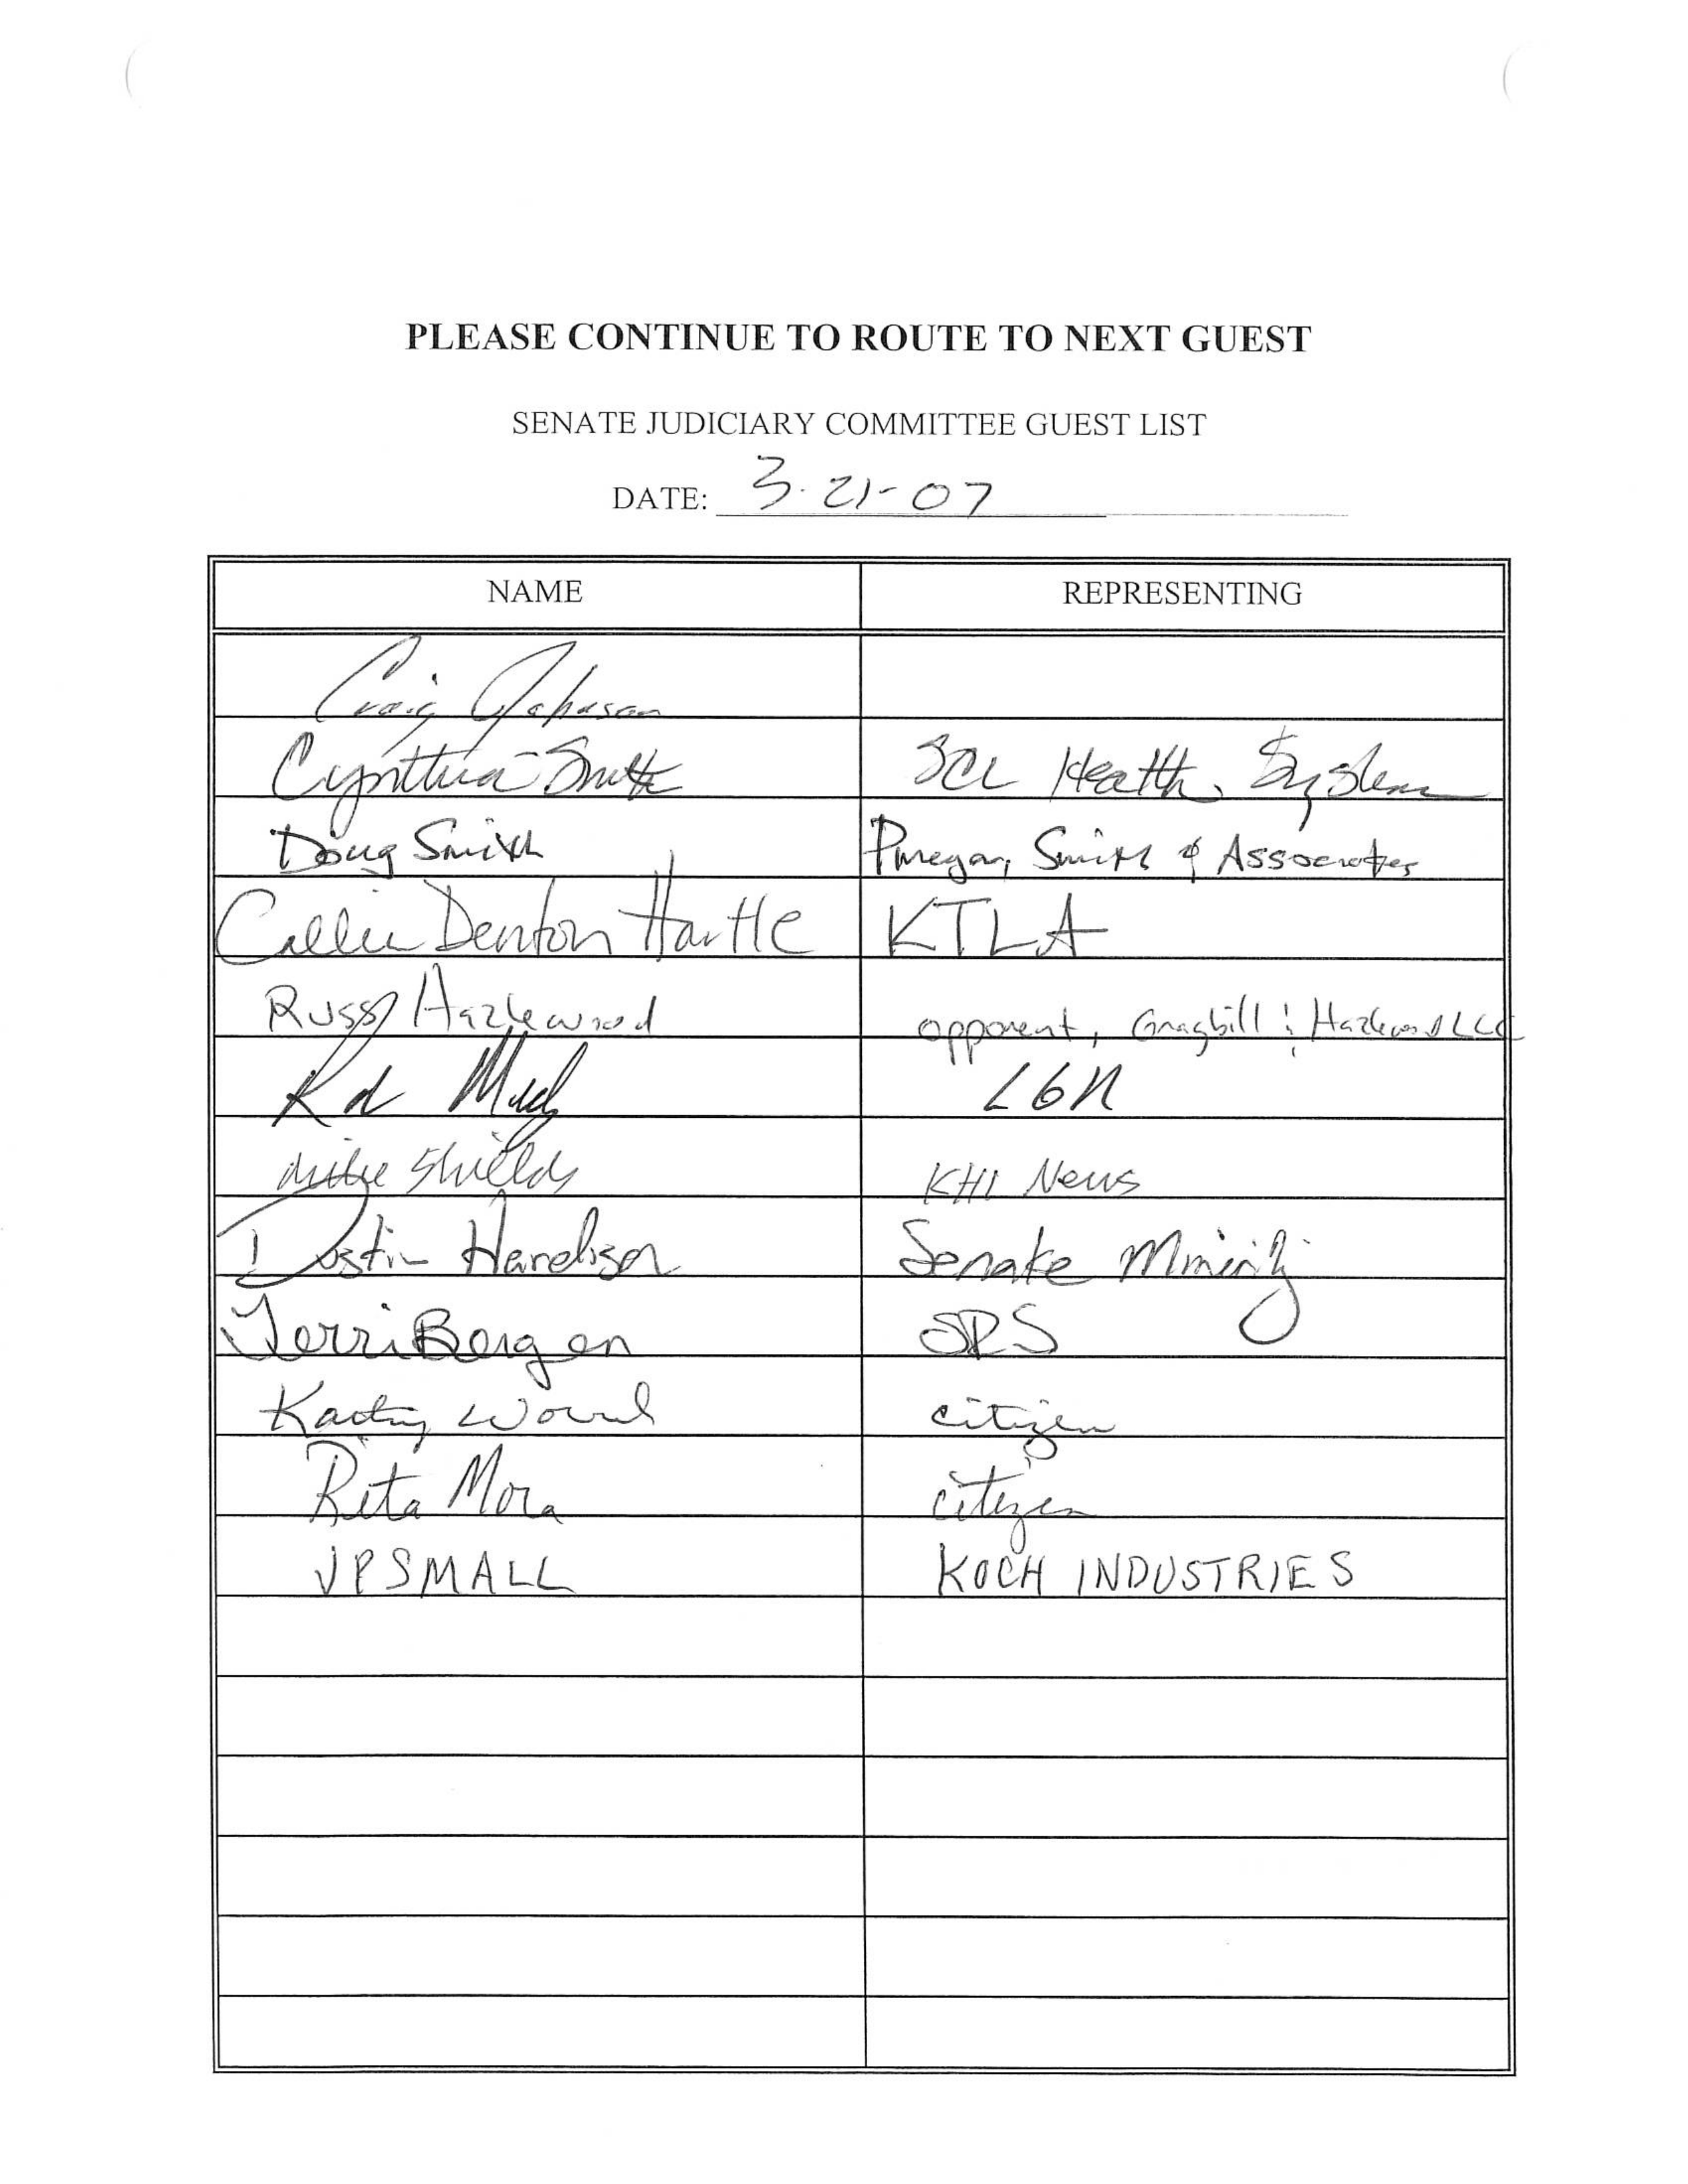 PLEASE CONTINUE TO ROUTE TO NEXT GUEST
SENATE JUDICIARY COMMITTEE GUEST LIST
DATE: 3-21-07
NAME REPRESENTING
Craig Johnson
Cynthia Smith SCL Health System
Doug Smith Pinegar, Smith & Associates
Callie Denton Hartle KTLA
Russ Hazlewood opponent, Graybill & Hazlewood LLC
LGR
Mike Shields KHI News
Dustin Hardison Senate Minority
Terri Bergen SRS
Kathy Wood citizen
Rita Mora citizen
JP SMALL KOCH INDUSTRIES